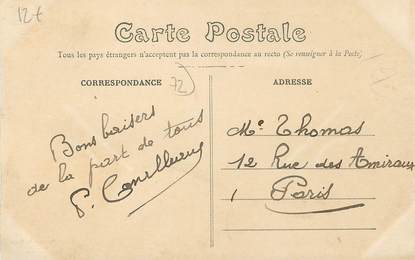 12 €
Carte Postale
Tous les pays étrangers n'acceptent pas la correspondance au recto (Se renseigner à la Poste)
CORRESPONDANCE
72
ADRESSE
Bons baisers
de la part de tous
P.
Me Thomas
12 Rue des Amiraux
Paris